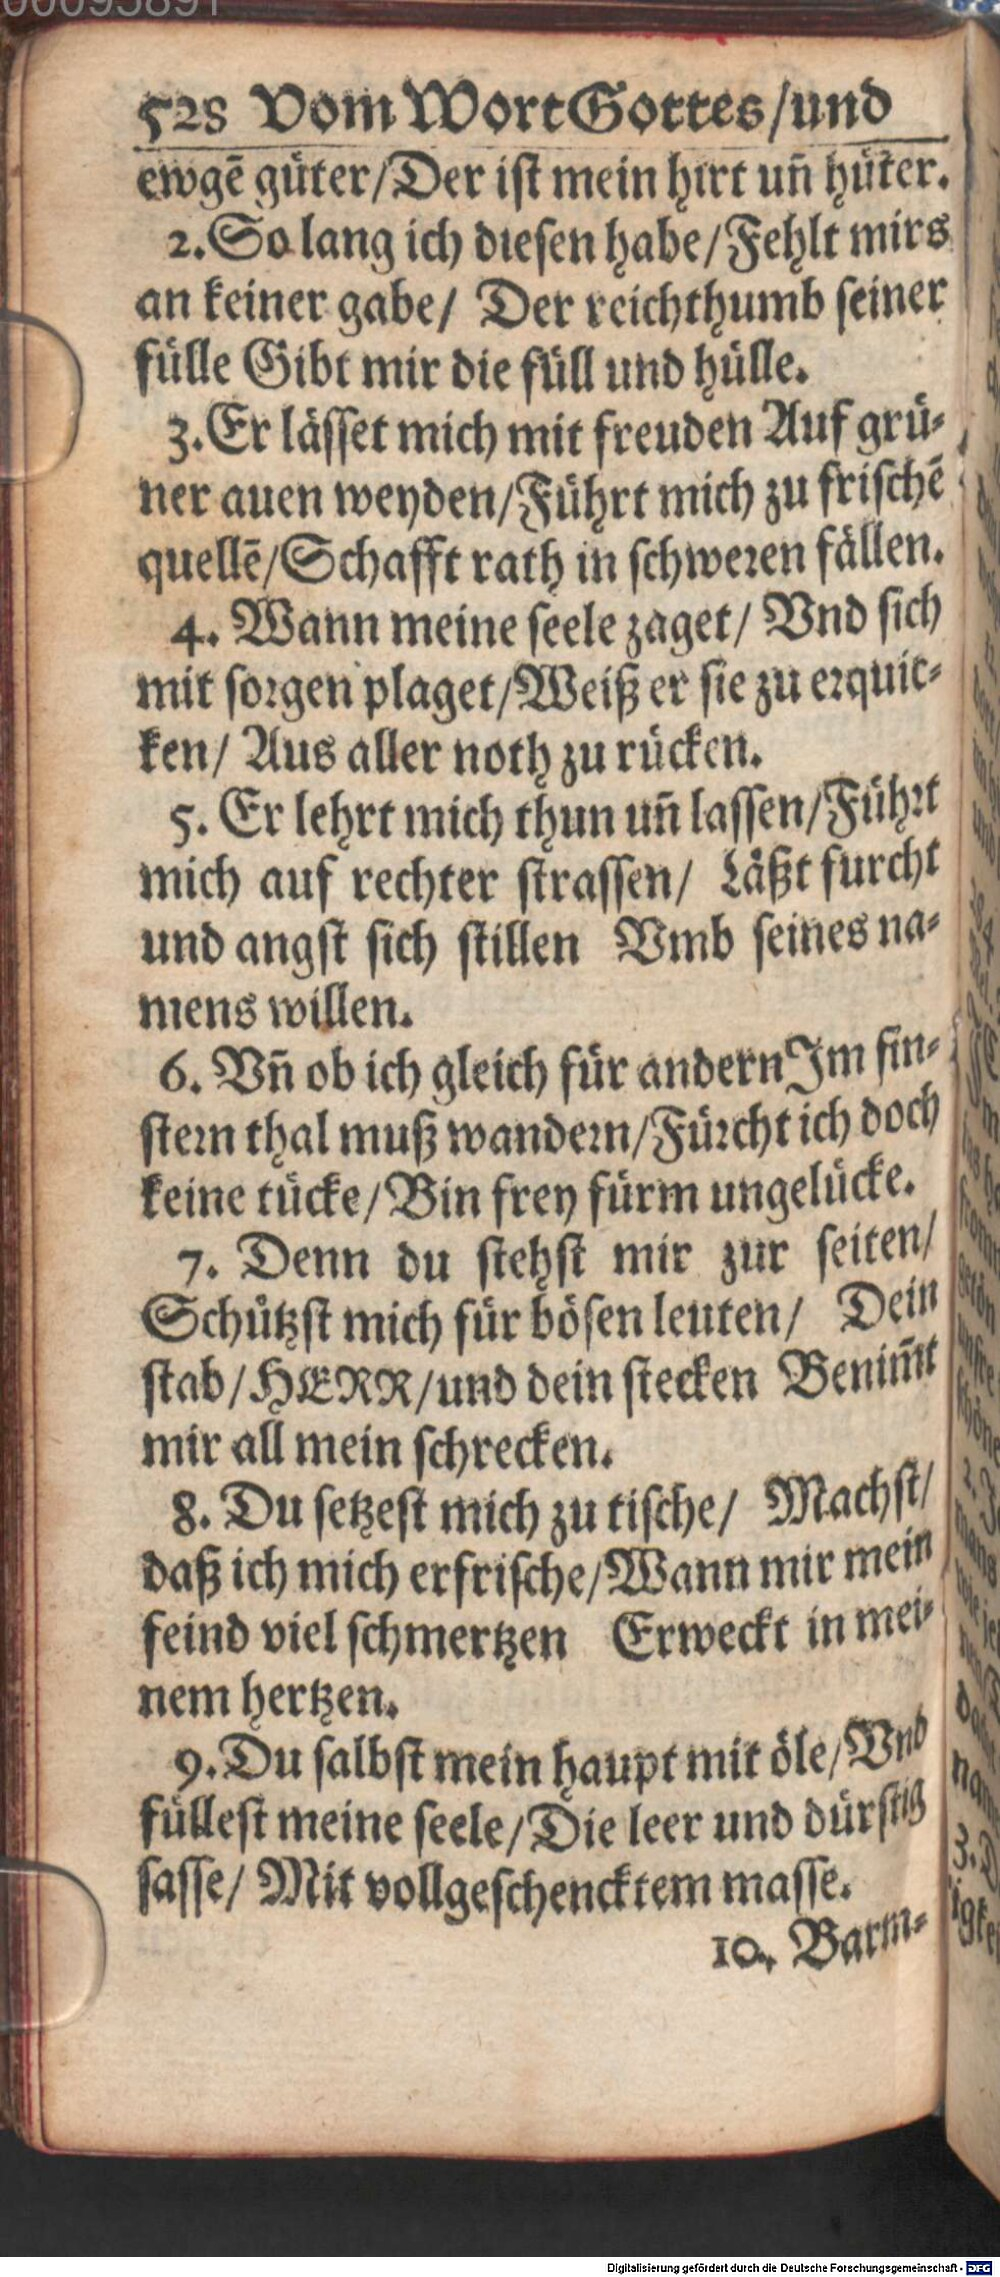 00095891
528 Vom Wort Gottes/und
ewgē güter/Der ist mein hirt uñ hüter.
2. So lang ich diesen habe/Fehlt mirs
an keiner gabe/ Der reichthumb seiner
fülle Gibt mir die füll und hülle.
3. Er lässet mich mit freuden Auf grü-
ner auen weyden/Führt mich zu frischē
quellē/Schafft rath in schweren fällen.
4. Wann meine seele zaget/ Vnd sich
mit sorgen plaget/Weiß er sie zu erquic-
ken/ Aus aller noth zu rücken.
5. Er lehrt mich thun uñ lassen/Führt
mich auf rechter strassen/ Läßt furcht
und angst sich stillen Vmb seines na-
mens willen.
6. Vñ ob ich gleich für andern Im fin-
stern thal muß wandern/Fürcht ich doch
keine tücke/Bin frey fürm ungelücke.
7. Denn du stehst mir zur seiten/
Schützst mich für bösen leuten/ Dein
stab/HERR/und dein stecken Benim̄t
mir all mein schrecken.
8. Du setzest mich zu tische/ Machst/
daß ich mich erfrische/Wann mir mein
feind viel schmertzen Erweckt in mei-
nem hertzen.
9. Du salbst mein haupt mit öle/Vnd
füllest meine seele/Die leer und dürstig
sasse/ Mit vollgeschencktem masse.
10. Barm-
Digitalisierung gefördert durch die Deutsche Forschungsgemeinschaft - DFG